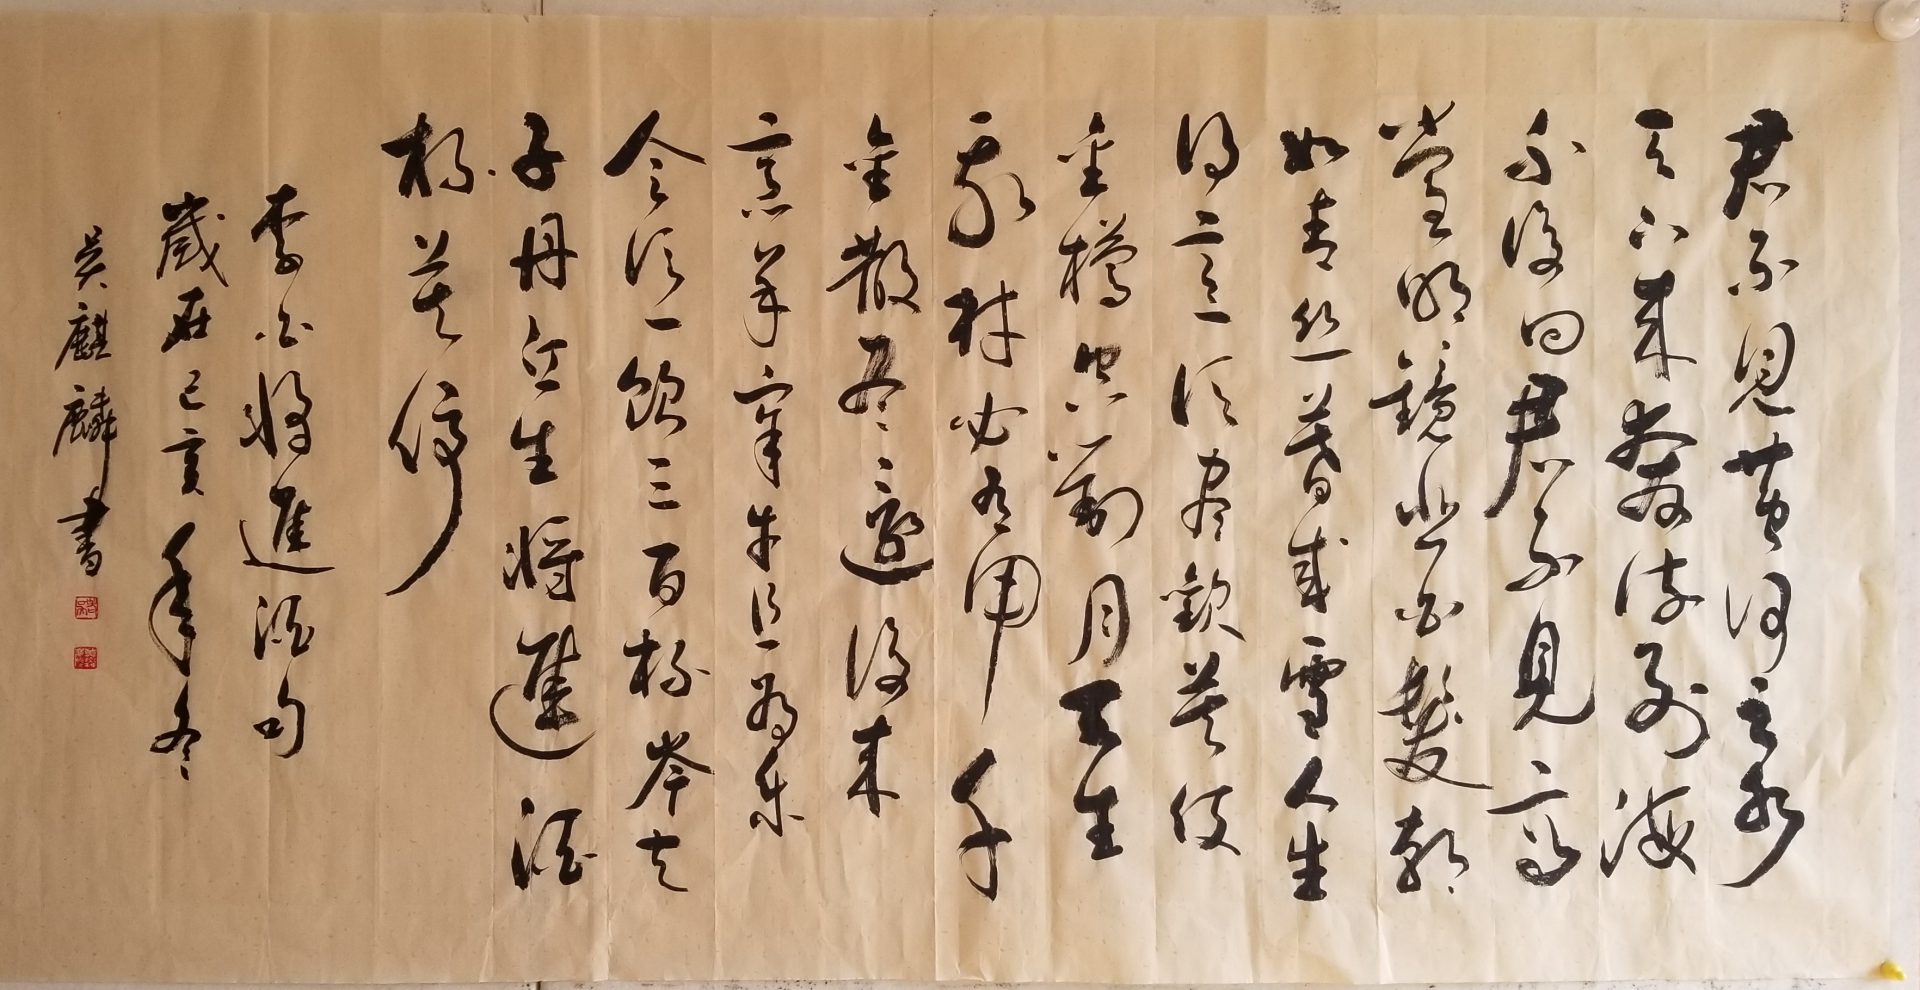 君不見黃河之水
天上来奔流到海
不復回君不見高
堂明鏡悲白髮朝
如青丝暮成雪人生
得意须尽歡莫使
金樽空對月天生
我材必有用千
金散尽還復来
烹羊宰牛且为乐
会须一飲三百杯岑夫
子丹丘生將進酒
杯莫停
李白将進酒句
歲在己亥年冬
吴麒麟書